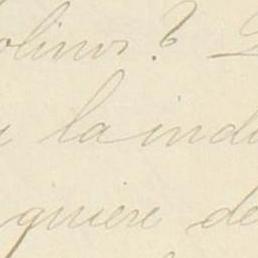 olinos?
la ind
quiere de